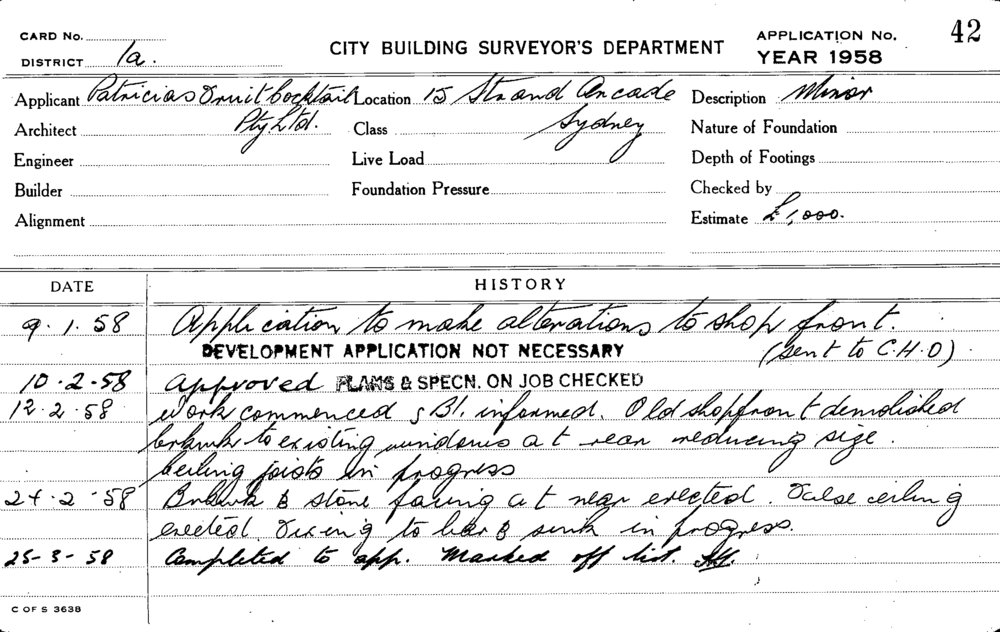 CARD No.
DISTRICT 1a.
CITY BUILDING SURVEYOR'S DEPARTMENT
APPLICATION No. 42
YEAR 1958
Applicant Patricias Fruit Cocktail
Pty Ltd.
Location 15 Strand Arcade
Sydney
Description Minor
Architect
Class
Nature of Foundation
Engineer
Live Load
Depth of Footings
Builder
Foundation Pressure
Checked by
Alignment
Estimate £1,000.
DATE HISTORY
9.1.58 Application to make alterations to shop front.
DEVELOPMENT APPLICATION NOT NECESSARY (sent to C.H.O).
10.2.58 Approved PLANS & SPECN. ON JOB CHECKED
12.2.58 Work commenced & B.I. informed. Old shopfront demolished
brkwk to existing windows at rear reducing size.
Ceiling joists in progress
24.2.58 Brkwk & stone facing at rear erected. False ceiling
erected. Fixing to bar & sink in progress.
25-3-58 Completed to app. Marked off list.
C OF S 3638